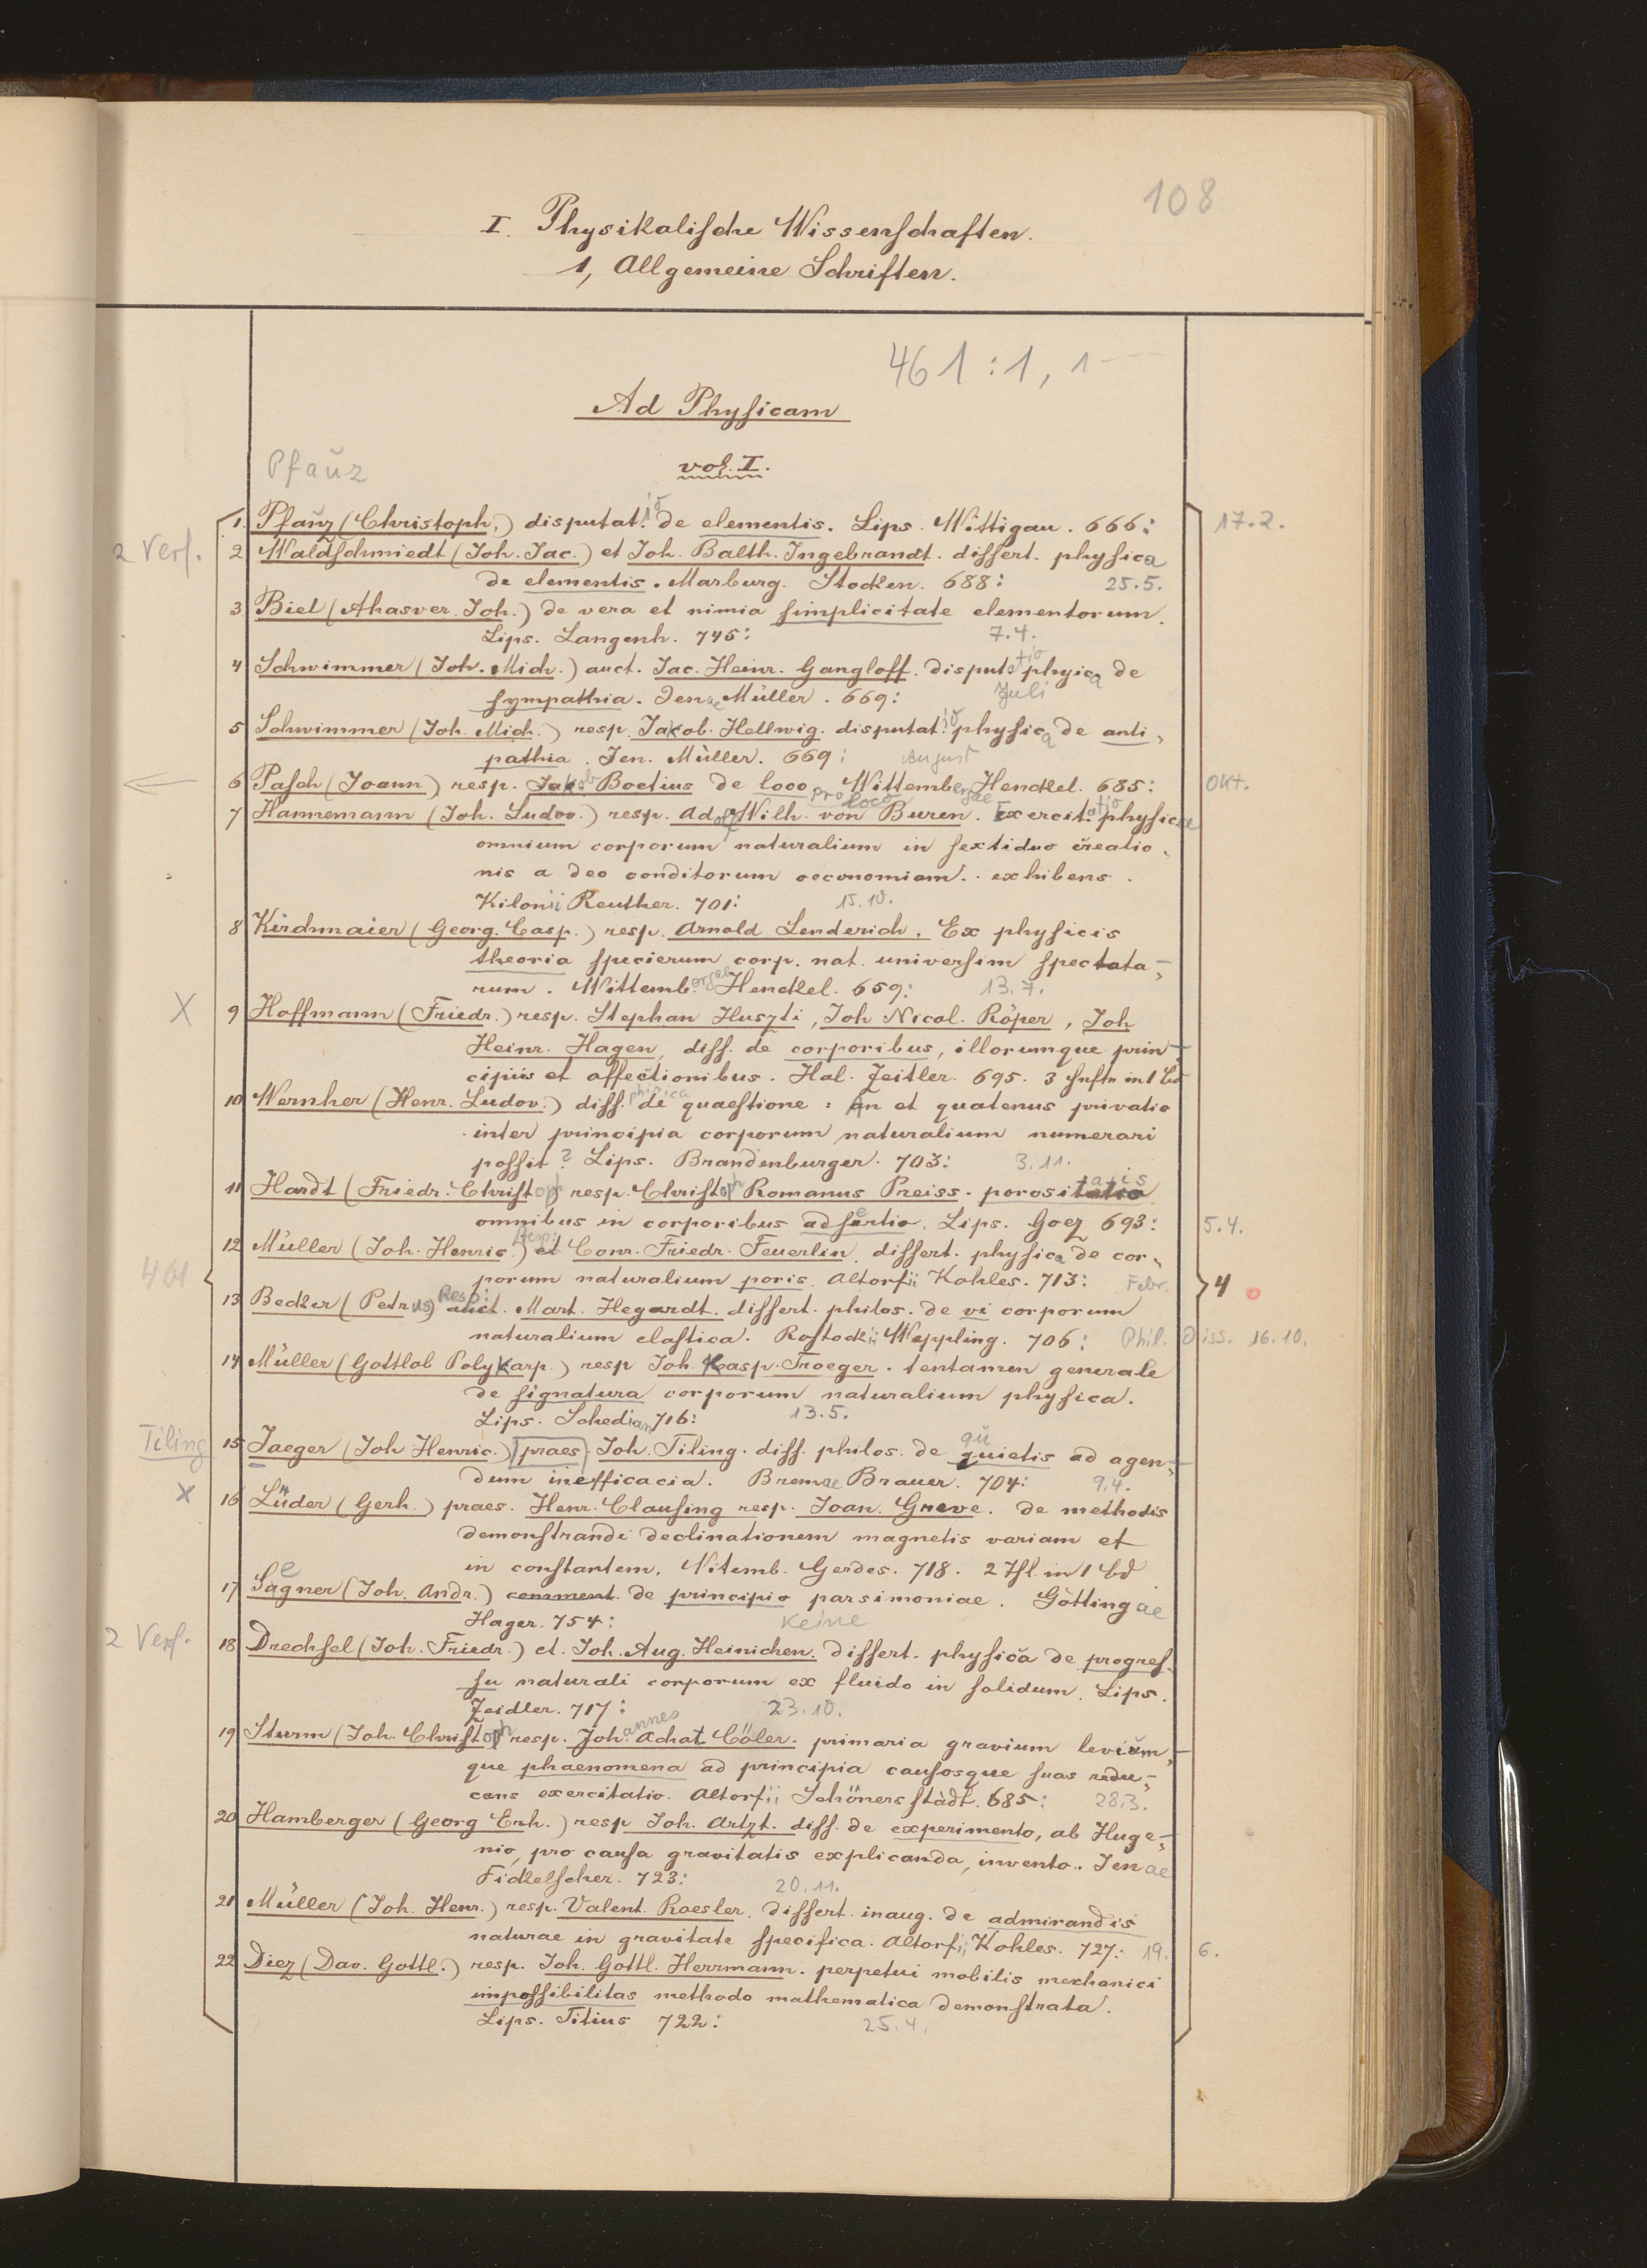 108
I. Physikalische Wissenschaften.
1, Allgemeine Schriften.
461:1, 1
Ad Physicam
Pfauz
vol. I.
1. Pfauz (Christoph.) disputatio de elementis. Lips. Wittigau. 666: 17.2.
2 Verf. 2 Waldschmiedt (Joh. Jac.) et Joh. Balth. Ingebrandt. dissert. physica
de elementis. Marburg. Stocken. 688: 25.5.
3. Biel (Ahasver. Joh.) de vera et nimia simplicitate elementorum.
Lips. Langenh. 745: 7.4.
4 Schwimmer (Joh. Mich.) auct. Jac. Heinr. Gangloff. disputatio phyica de
sympathia. Jenae Müller. 669: Juli
5 Schwimmer (Joh. Mich.) resp. Jakob. Hellwig. disputatio physica de anti,
pathia. Jen. Müller. 669: August
6 Pasch (Joann) resp. Jakob Boetius de loco Wittembergae Henckel. 685: Okt.
pro loco
7 Hannemann (Joh. Ludov.) resp. Adolf Wilh. von Buren. Exercitatio physicae
omnium corporum naturalium in sextiduo creatio,
nis a deo conditorum oeconomiam. exhibens.
Kilonii Reuther. 701: 15.10.
8 Kirchmaier (Georg. Casp.) resp. Arnold Lenderich. Ex physicis
theoria specierum corp. nat. universim spectata,
rum. Wittembergae Henckel. 659: 13.7.
X 9 Hoffmann (Friedr.) resp. Stephan Huszti, Joh Nicol. Röper, Joh
Heinr. Hagen, diss. de corporibus, illorumque prin,
cipiis et affectionibus. Hal. Zeitler. 695. 3 Hefte in 1 Bd
10 Wernher (Henr. Ludov.) diss. phisica de quaestione: An et quatenus privatio
inter principia corporum naturalium numerari
possit? Lips. Brandenburger. 703: 3.11.
11 Hardt (Friedr. Christoph) resp. Christoph Romanus Preiss. porositatis
omnibus in corporibus adsertio. Lips. Goez 693: 5.4.
12 Müller (Joh. Henric.) et Resp: Conr. Friedr. Feuerlin. dissert. physica de cor,
461 porum naturalium poris. Altorfii Kohles. 713: Febr. 4
13 Becker (Petrus) auct. Resp: Mart. Hegardt. dissert. philos. de vi corporum
naturalium elastica. Rostockii Weppling. 706: Phil. Diss. 16.10.
14 Müller (Gottlob Polykarp.) resp Joh. Kasp. Troeger. tentamen generale
de signatura corporum naturalium physica.
Lips. Schedian 716: 13.5.
Tiling 15 Jaeger (Joh Henric.) praes. Joh. Tiling. diss. philos. de quietis ad agen,
dum inefficacia. Bremae Brauer. 704: 9.4.
X 16 Lüder (Gerh.) praes. Henr. Clausing resp. Joan. Greve. de methodis
demonstrandi declinationem magnetis variam et
in constantem. Vitemb. Gerdes. 718. 2 Thl in 1 Bd
17 Sagner (Joh. Andr.) comment. de principio parsimoniae. Göttingae
Hager. 754: keine
2 Verf. 18 Drechsel (Joh. Friedr.) et. Joh. Aug. Heinichen. dissert. physica de progres,
su naturali corporum ex fluido in solidum. Lips.
Zeidler. 717: 23.10.
19 Sturm (Joh. Christoph) resp. Johannes Achat Cöler. primaria gravium levium,
que phaenomena ad principia causosque suas redu,
cens exercitatio. Altorfii Schönerstädt. 685: 28.3.
20 Hamberger (Georg Erh.) resp Joh. Artzt. diss. de experimento, ab Huge,
nio, pro causa gravitatis explicanda, invento. Jenae
Fickelscher. 723: 20.11.
21 Müller (Joh. Henr.) resp. Valent. Roesler. dissert. inaug. de admirandis
naturae in gravitate specifica. Altorfii Kohles. 727: 19. 6.
22 Diez (Dav. Gottl.) resp. Joh. Gottl. Herrmann. perpetui mobilis mechanici
impossibilitas methodo mathematica demonstrata.
Lips. Titius 722: 25.4.